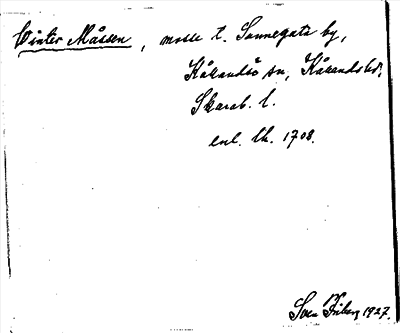 Winter Måssen, mosse t. Sannegata by,
Kåkindsö sn, Kåkinds hd,
Skarab. l.
enl. lk. 1708.
Sven Friberg 1927.